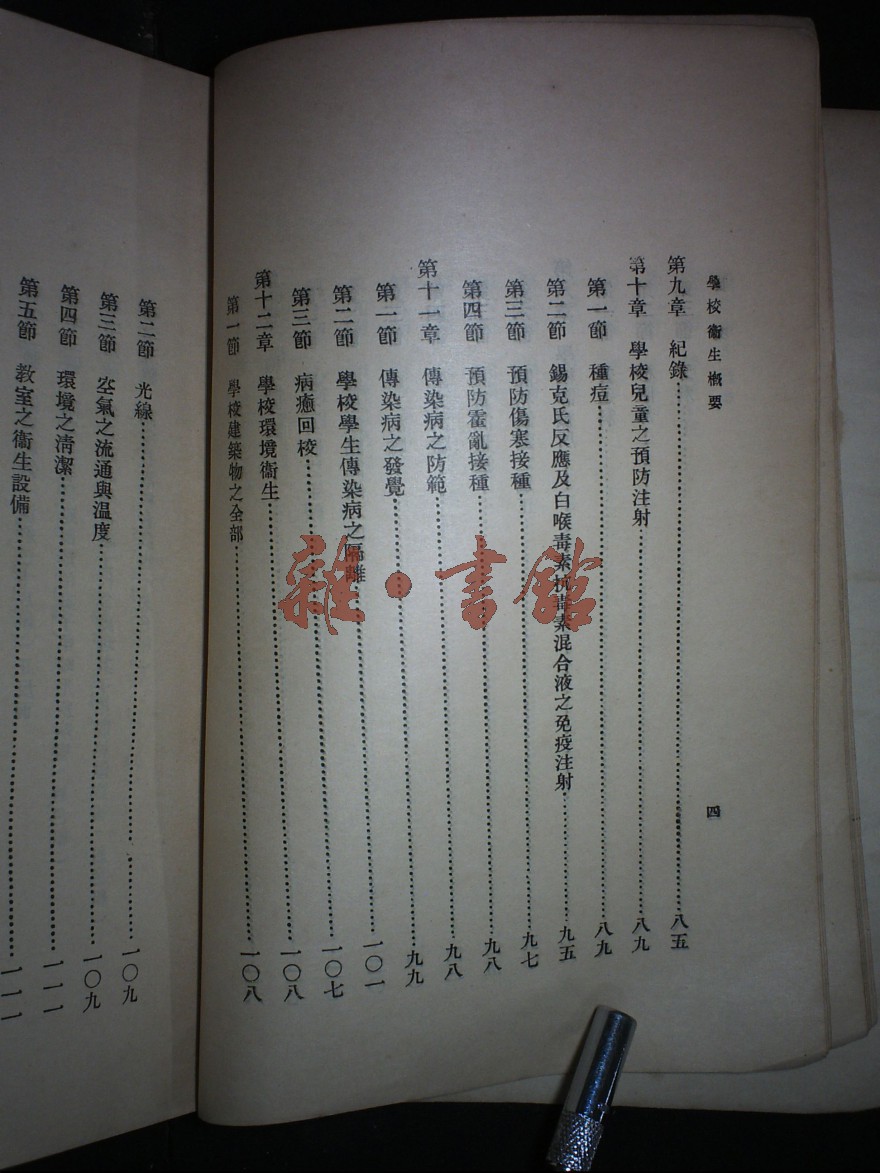 學校衞生概要
四
第九章 紀錄……八五
第十章 學校兒童之預防注射……八九
第一節 種痘……八九
第二節 錫克氏反應及白喉毒素抗毒素混合液之免疫注射……九五
第三節 預防傷寒接種……九七
第四節 預防霍亂接種……九八
第十一章 傳染病之防範……九八
第一節 傳染病之發覺……九九
第二節 學校學生傳染病之隔離……一〇一
第三節 病癒回校……一〇七
第十二章 學校環境衞生……一〇八
第一節 學校建築物之全部……一〇八
第二節 光線……一〇九
第三節 空氣之流通與溫度……一〇九
第四節 環境之清潔……一一一
第五節 教室之衞生設備……一一一
雜·書館